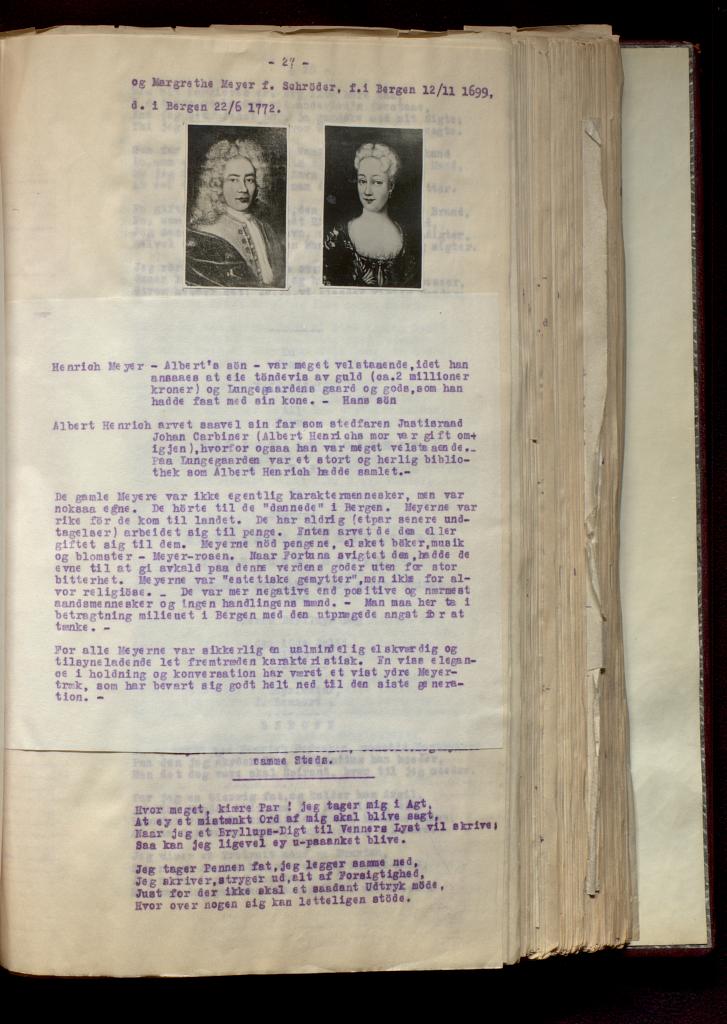 - 27 -
og Margrethe Meyer f. Schröder, f.i Bergen 12/11 1699,
d. i Bergen 22/6 1772.
Henrich Meyer - Albert's sön - var meget velstaaende,idet han
ansaaes at eie töndevis av guld (ca.2 millioner
kroner) og Lungegaardens gaard og gods,som han
hadde faat med sin kone. - Hans sön
Albert Henrich arvet saavel sin far som stedfaren Justisraad
Johan Carbiner (Albert Henrichs mor var gift om-
igjen),hvorfor ogsaa han var meget velstaaende.-
Paa Lungegaarden var et stort og herlig biblio-
thek som Albert Henrich hadde samlet.-
De gamle Meyere var ikke egentlig karaktermennesker, men var
noksaa egne. De hörte til de "dannede" i Bergen. Meyerne var
rike för de kom til landet. De har aldrig (etpar senere und-
tagelser) arbeidet sig til penge. Enten arvet de dem eller
giftet sig til dem. Meyerne nöd pengene, elsket böker,musik
og blomster - Meyer-rosen. Naar Fortuna svigtet dem,hadde de
evne til at gi avkald paa denne verdens goder uten for stor
bitterhet. Meyerne var "estetiske gemytter",men ikke for al-
vor religiöse. - De var mer negative end positive og nærmest
aandsmennesker og ingen handlingens mænd. - Man maa her ta i
betragtning milieuet i Bergen med den utprægede angst for at
tænke. -
For alle Meyerne var sikkerlig en ualmindelig elskværdig og
tilsyneladende let fremtræden karakteristisk. En viss elegan-
ce i holdning og konversation har været et vist ydre Meyer-
træk, som har bevart sig godt helt ned til den siste genera-
tion. -
samme Steds.
Hvor meget, kiære Par ! jeg tager mig i Agt,
At ey et mistænkt Ord af mig skal blive sagt,
Naar jeg et Bryllups-Digt til Venners Lyst vil skrive;
Saa kan jeg ligevel ey u-paaanket blive.
Jeg tager Pennen fat,jeg legger samme ned,
Jeg skriver,stryger ud,alt af Forsigtighed,
Just for der ikke skal et saadant Udtryk möde,
Hvor over nogen sig kan letteligen stöde.